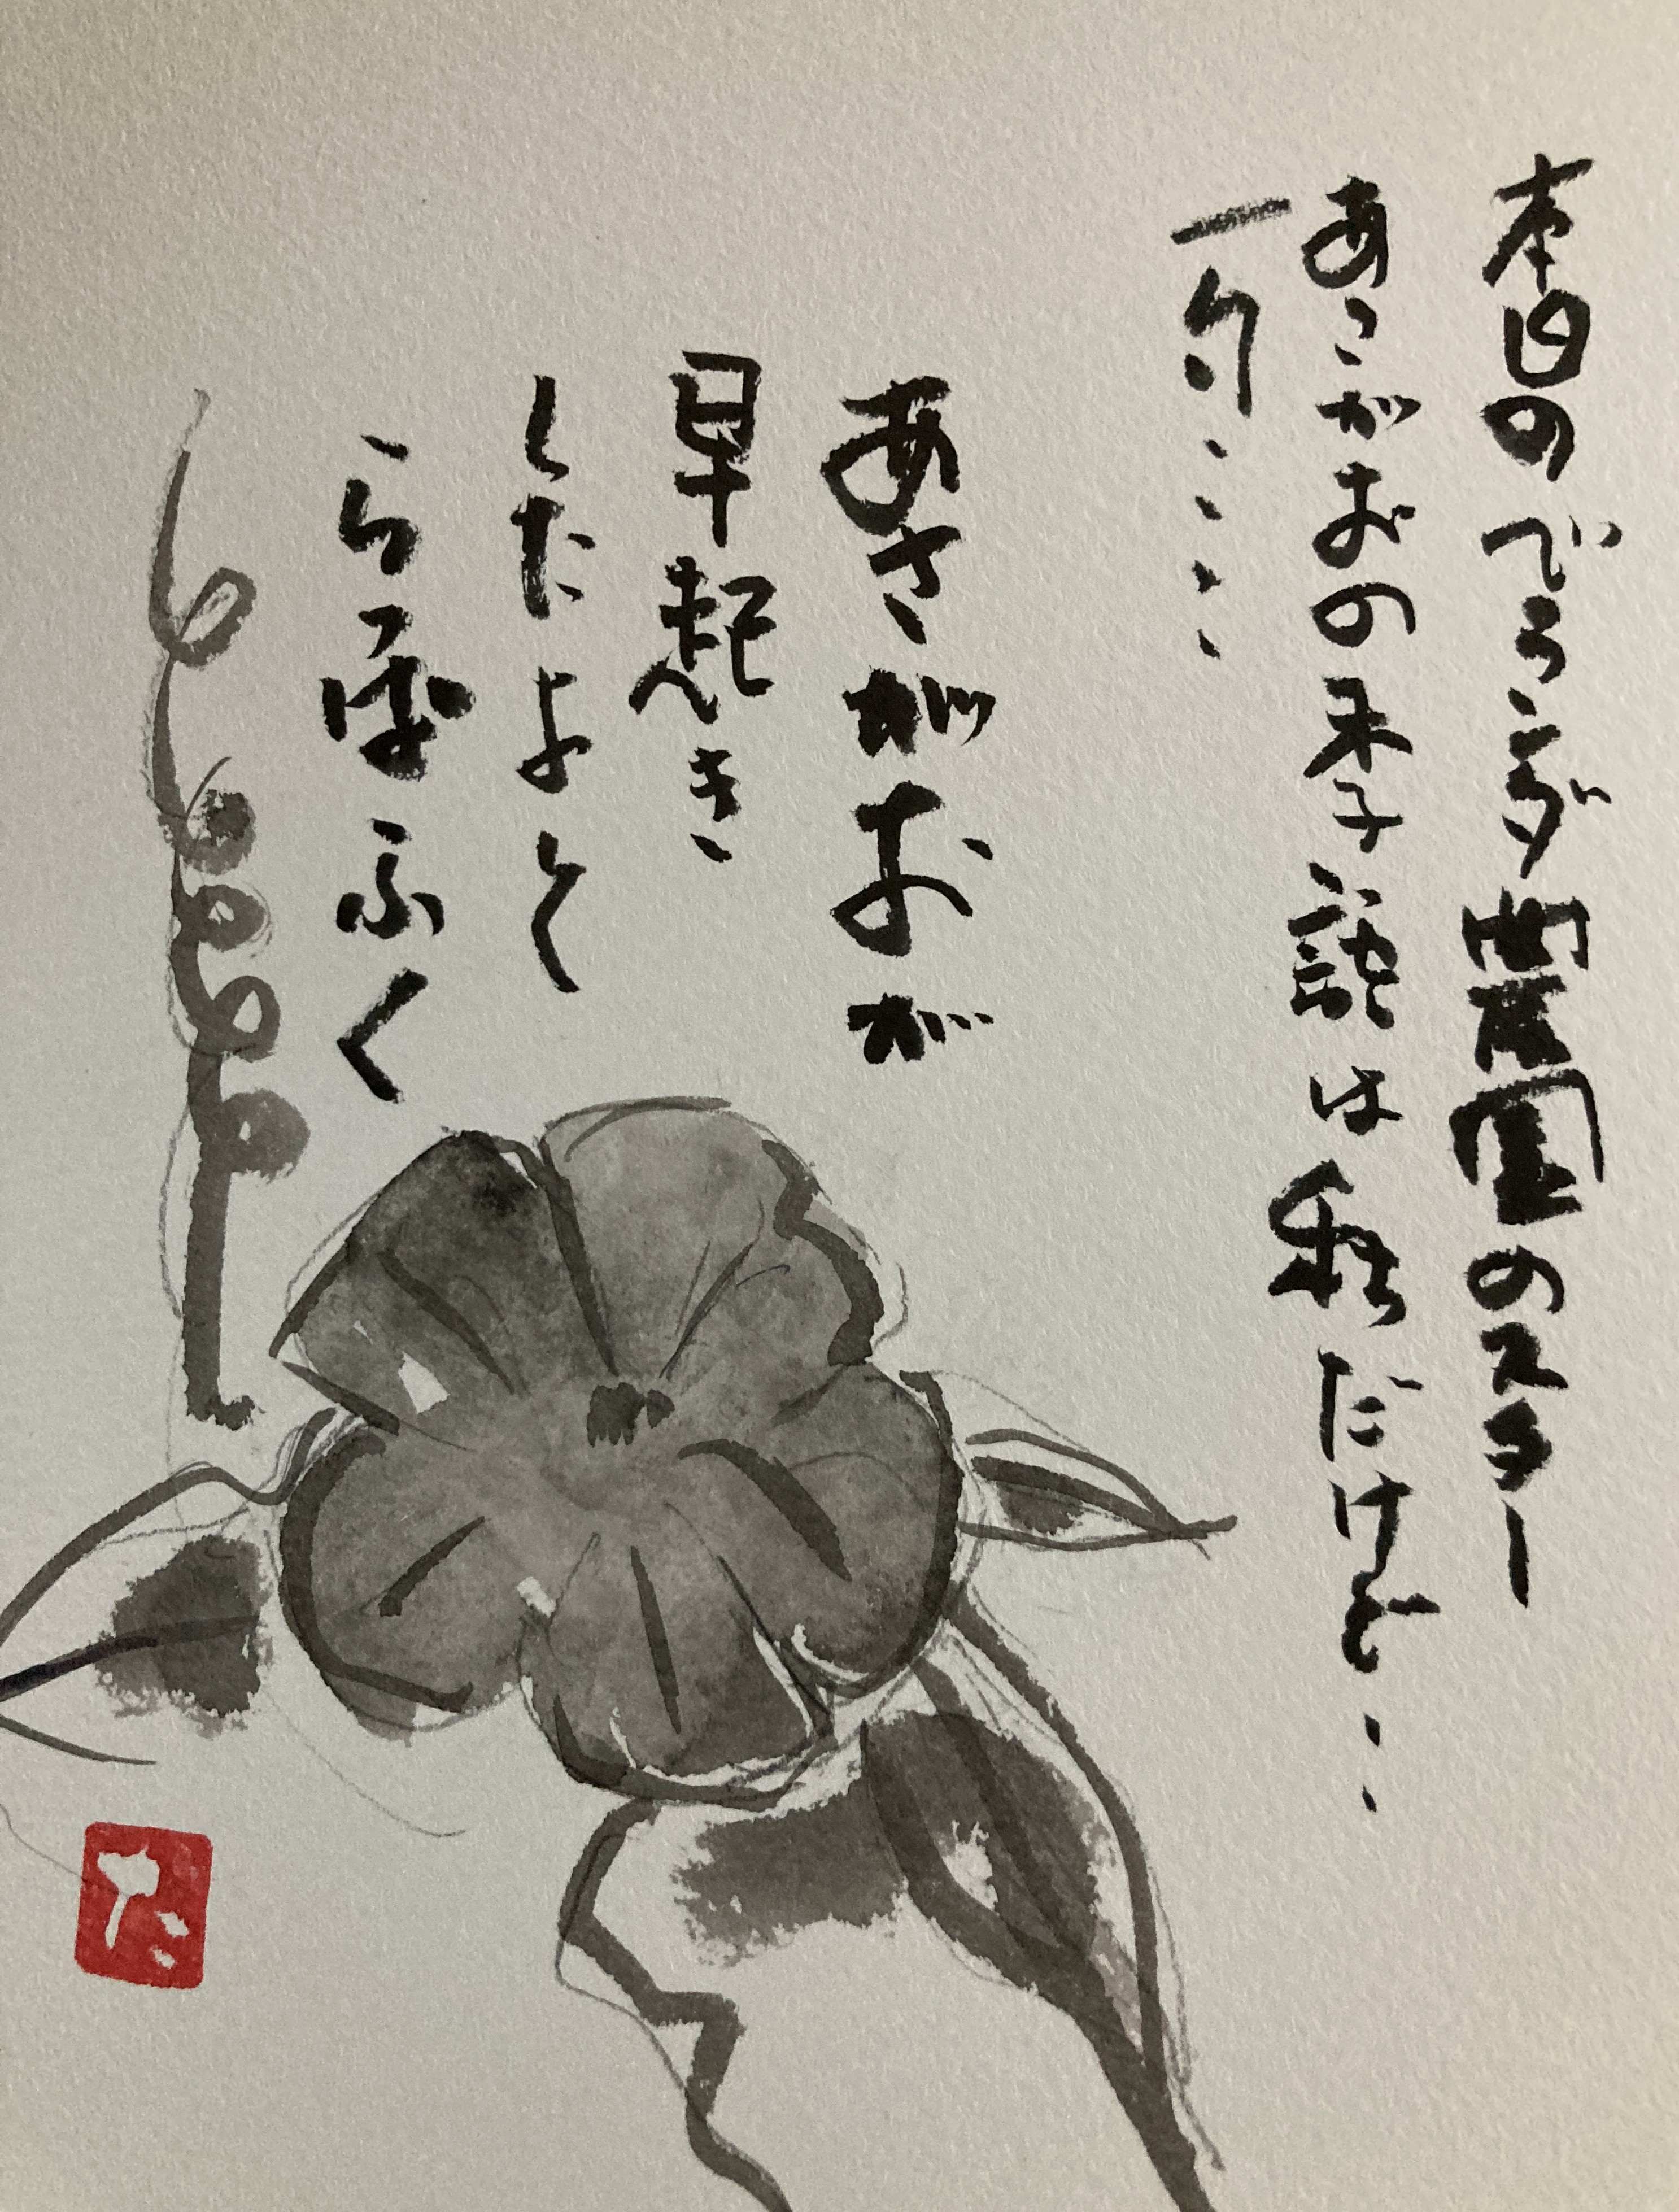 本日のべランダ農園のスター
あさがおの季語は秋だけど・・
一句・・・・
あさがおが
早起き
したよと
らっぱふく
た